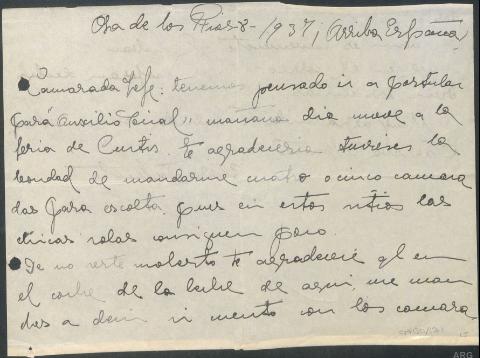 Oza de los Rios-8-1937 ¡Arriba España!
Camarada Jefe: tenemos pensado ir a postular
para Auxilio Social,, mañana dia nueve a la
feria de Curtis. te agradeceria tuvieses la
bondad de mandarme cuatro o cinco camara
das para escolta. pues en estos sitios las
chicas solas consiguen poco.
De no serte molesto te agradeceré ql en
el coche de la leche de aqui, me man
des a decir si cuento con los camara-
ARG